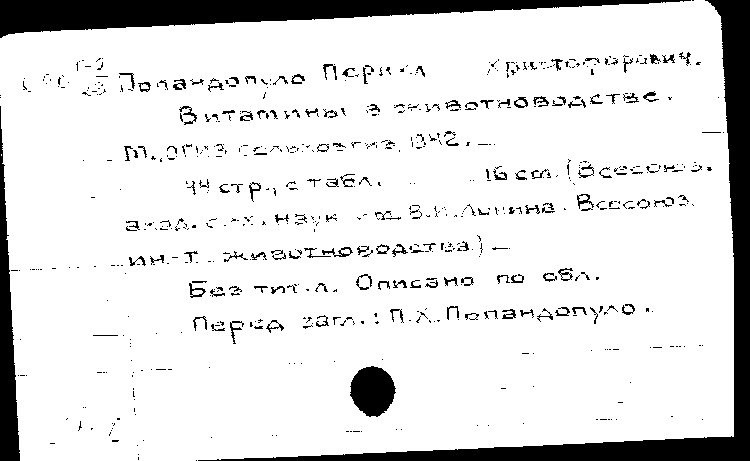 Г-9
28
Попандопуло Перикл Христофорович.
Витамины в животноводстве.
М., ОГИЗ сельхозгиз, 1942. —
44 стр., с табл. 16 см. (Всесоюз.
акад. с.-х. наук им. В.И.Ленина. Всесоюз.
ин.-т. животноводства) —
Без тит.л. Описано по обл.
Перед загл.: П.Х.Попандопуло.